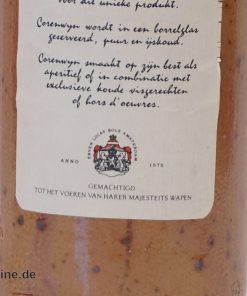 voor dit unieke produkt.
Corenwyn wordt in een borrelglas
geserveerd, puur en ijskoud.
Corenwyn smaakt op zijn best als
aperitief of in combinatie met
exclusieve koude visgerechten
of hors d'oeuvres.
ERVEN LUCAS BOLS AMSTERDAM
ANNO 1575
GEMACHTIGD
TOT HET VOEREN VAN HARER MAJESTEITS WAPEN
ine.de